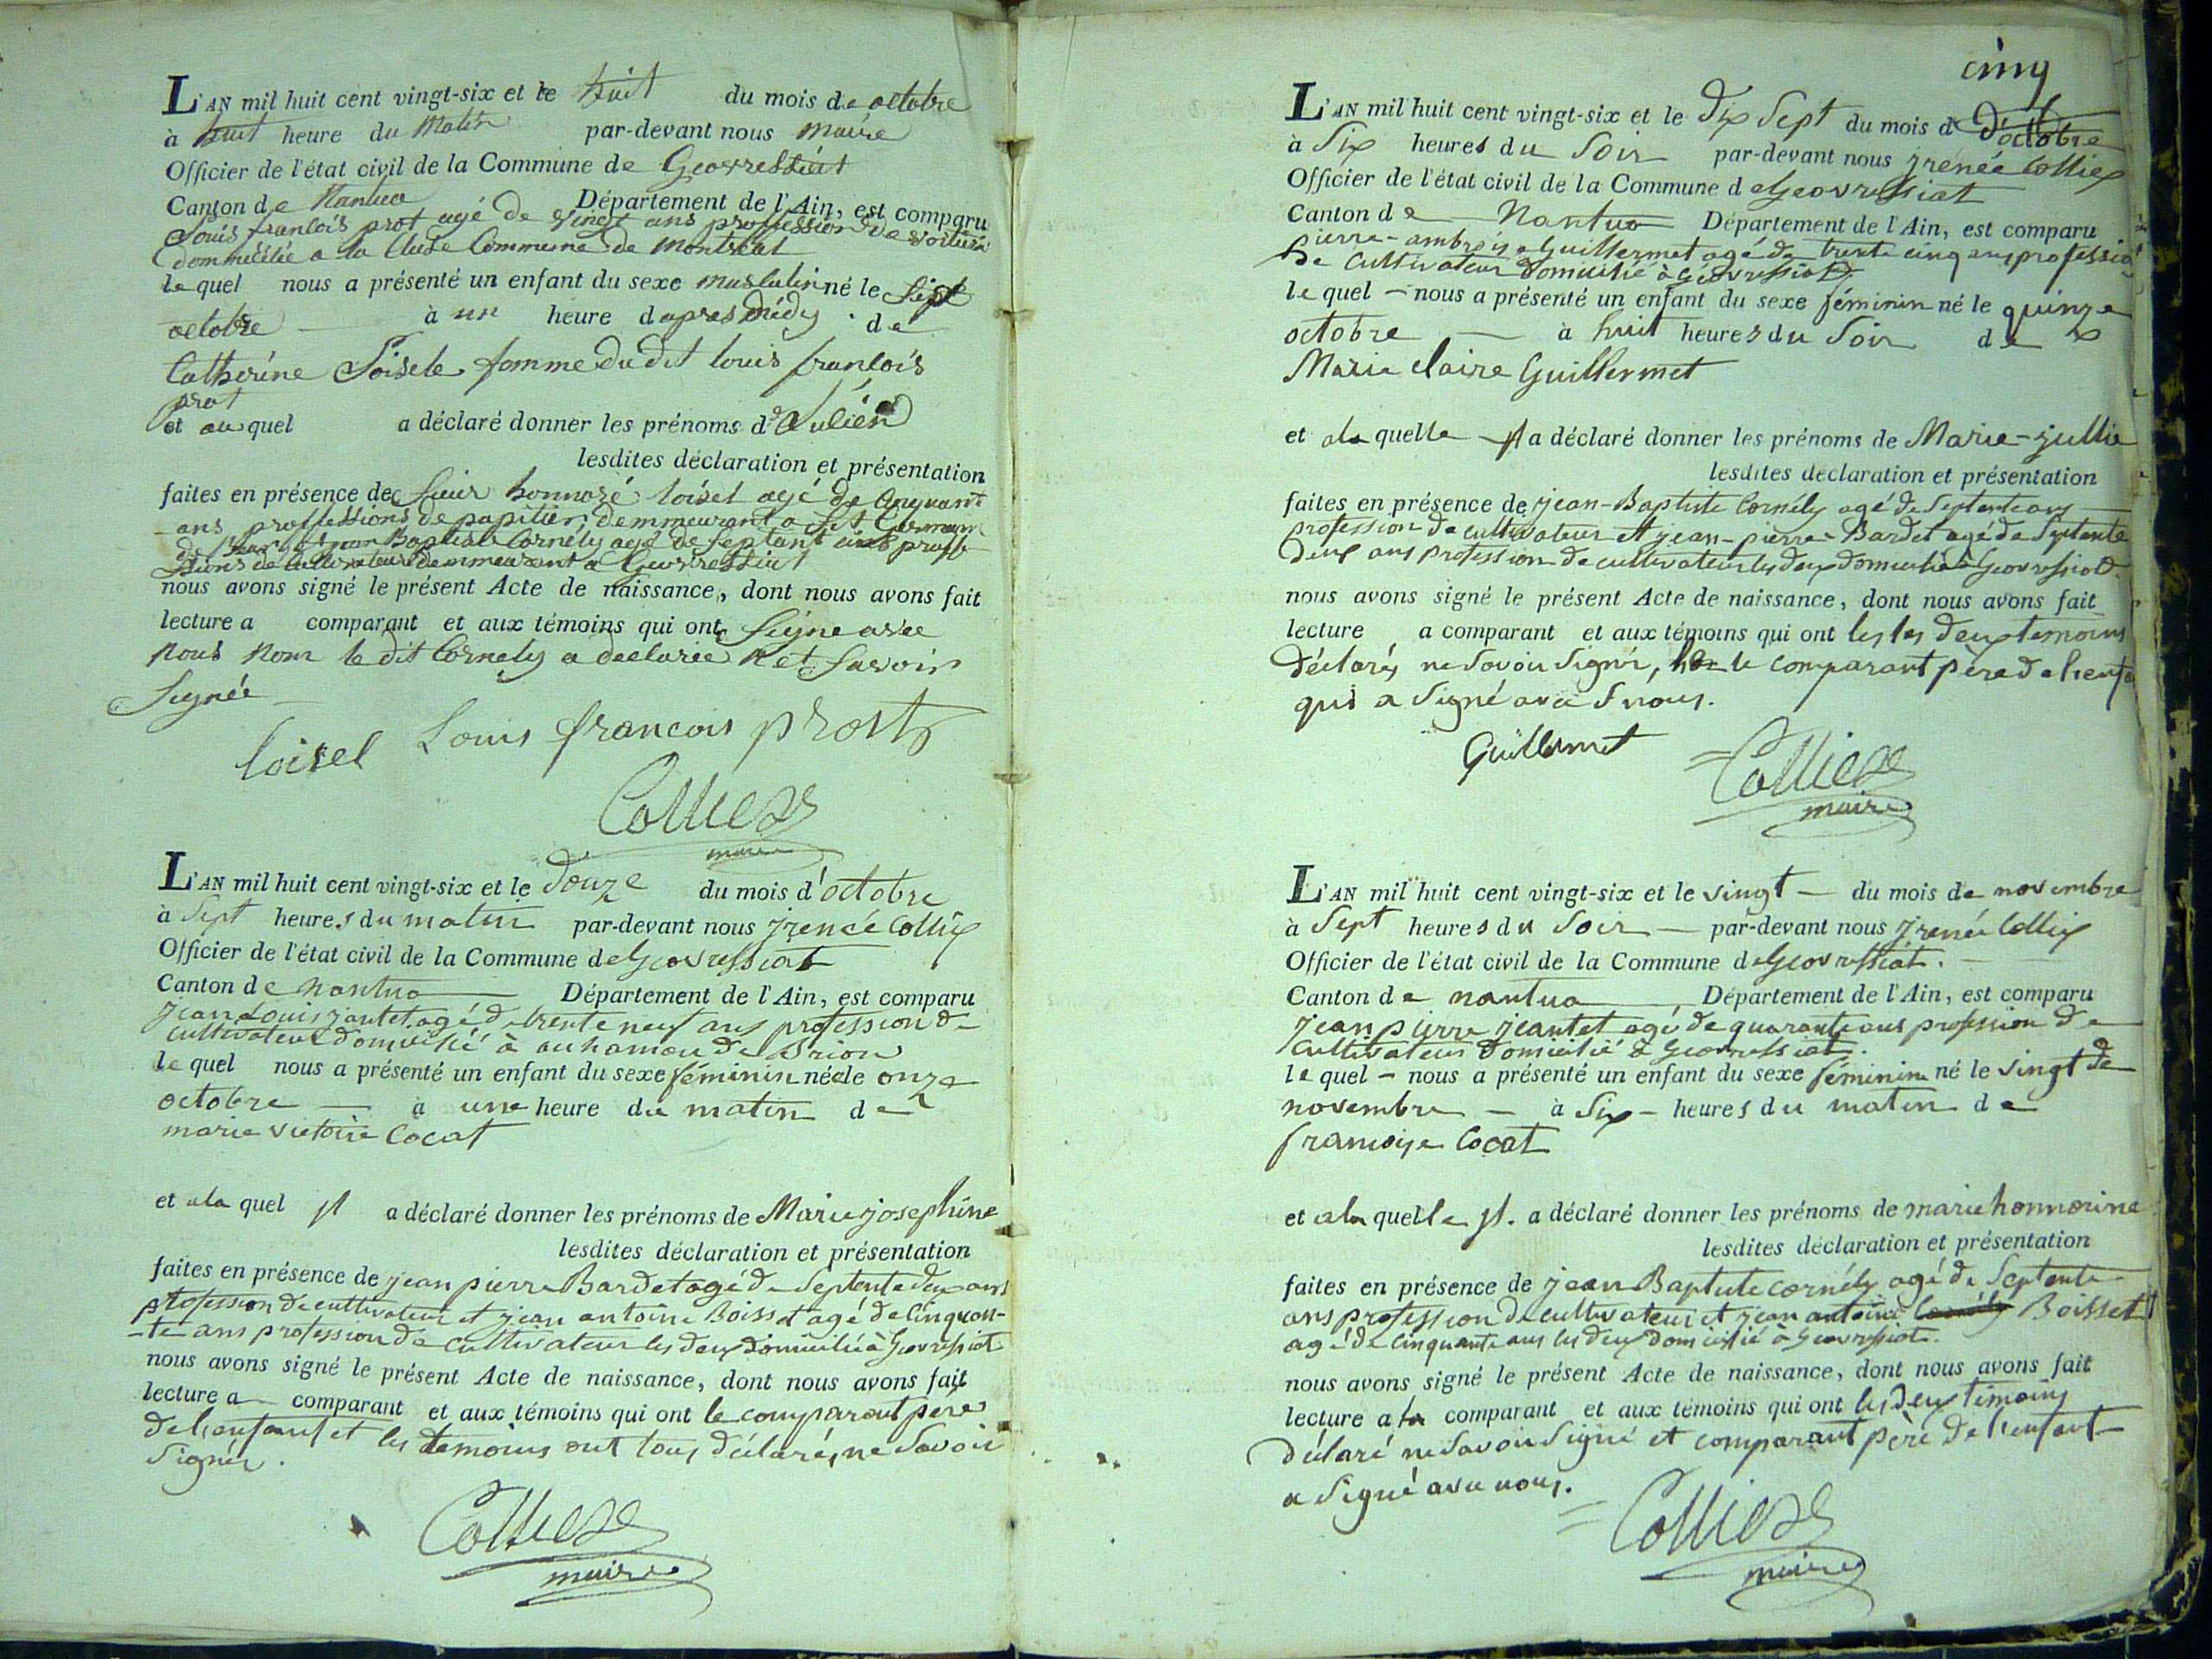 L'AN mil huit cent vingt-six et le huit du mois de octobre
à huit heure du Matin par-devant nous maire
Officier de l'état civil de la Commune de Geovressiat
Canton de Nantua Département de l'Ain, est comparu
Louis franlois prot agé de vingt ans proffession de voiturié
dommisilié a la Cluse Commune de Montreal
le quel nous a présenté un enfant du sexe musculin né le sept
octobre à un heure d apres Midy de
Catherine Loisele fomme du dit louis franlois
prot
et au quel a déclaré donner les prénoms de Julien
lesdites déclaration et présentation
faites en présence de Sieur honnoré loisel agé de Cinquant
ans proffessions de papitier demmeurant a St Germain
de Baptiste Cornély agé de septant cinq proffe
ssions de Cultivateur demmeurant a Geovressiat
nous avons signé le présent Acte de naissance, dont nous avons fait
lecture a comparant et aux témoins qui ont Signe avec
nous non le dit Cornely a declaree savoir
Signée
loisel Louis francois prost
Colliex
maire
L'AN mil huit cent vingt-six et le Douze du mois d'octobre
à Sept heures du matin par-devant nous jrenée Colliex
Officier de l'état civil de la Commune de Geovressiat
Canton de nantua Département de l'Ain, est comparu
jean Louis jantet agé de trente neuf ans profession de
cultivateur domicilié à au hamou de Brion
le quel nous a présenté un enfant du sexe féminin née le onze
octobre à une heure du matin de
marie victoire Cocat
et ala quel jl a déclaré donner les prénoms de Marie josephine
lesdites déclaration et présentation
faites en présence de jean pierre Bardet agé de Septente deux ans
profession de cultivateur et jean antoine Boisset agé de Cinquan-
-te ans profession de Cultivateur les deux domicilié à Geovressiat
nous avons signé le présent Acte de naissance, dont nous avons fait
lecture a comparant et aux témoins qui ont le comparant père
de l'enfant et les temoins ont tous déclarés ne Savoir
Signés.
Colliex
maire
cinq
L'AN mil huit cent vingt-six et le Dix Sept du mois d D'octobre
à Six heures du Soir par-devant nous jrenée Colliex
Officier de l'état civil de la Commune de Geovressiat
Canton de Nantua Département de l'Ain, est comparu
pierre-ambroise Guillermet agé de trente cinq ans professio
De Cultivateur Domicilié à Geovressiat
le quel - nous a présenté un enfant du sexe féminin né le quinze
octobre à huit heures du Soir de
Marie claire Guillermet
et ala quelle jl a déclaré donner les prénoms de Marie-jullie
lesdites déclaration et présentation
faites en présence de jean-Baptiste Cornély agé de Septente ans
profession de cultivateur et jean-pierre-Bardet agé de Septente
Deux ans profession de cultivateur les deux domicilié à Geovressiat.
nous avons signé le présent Acte de naissance, dont nous avons fait
lecture a comparant et aux témoins qui ont les les deux temoins
Déclarés ne Savoir Signér, le comparant père de l'enf
qui a Signé avec nous.
Guillermet Colliex
maire
L'AN mil huit cent vingt-six et le vingt du mois de novembre
à Sept heures du Soir par-devant nous jrenée Colliex
Officier de l'état civil de la Commune de Geovressiat.
Canton de nantua Département de l'Ain, est comparu
jean pierre jeantet agé de quarante ans profession de
Cultivateur Domicilié à Geovressiat.
le quel - nous a présenté un enfant du sexe féminin né le vingt de
novembre - à Six - heures du matin de
francoise Cocat
et ala quelle jl. a déclaré donner les prénoms de marie honnorine
lesdites déclaration et présentation
faites en présence de jean Baptiste cornély agé de Septente
ans profession de cultivateur et jean antoine Boisset
agé de Cinquante ans les deux domicilié à Geovressiat.
nous avons signé le présent Acte de naissance, dont nous avons fait
lecture a comparant et aux témoins qui ont les deux témoins
Déclaré ne Savoir Signé et comparant père de l'enfant
a Signé avec nous.
Colliex
maire